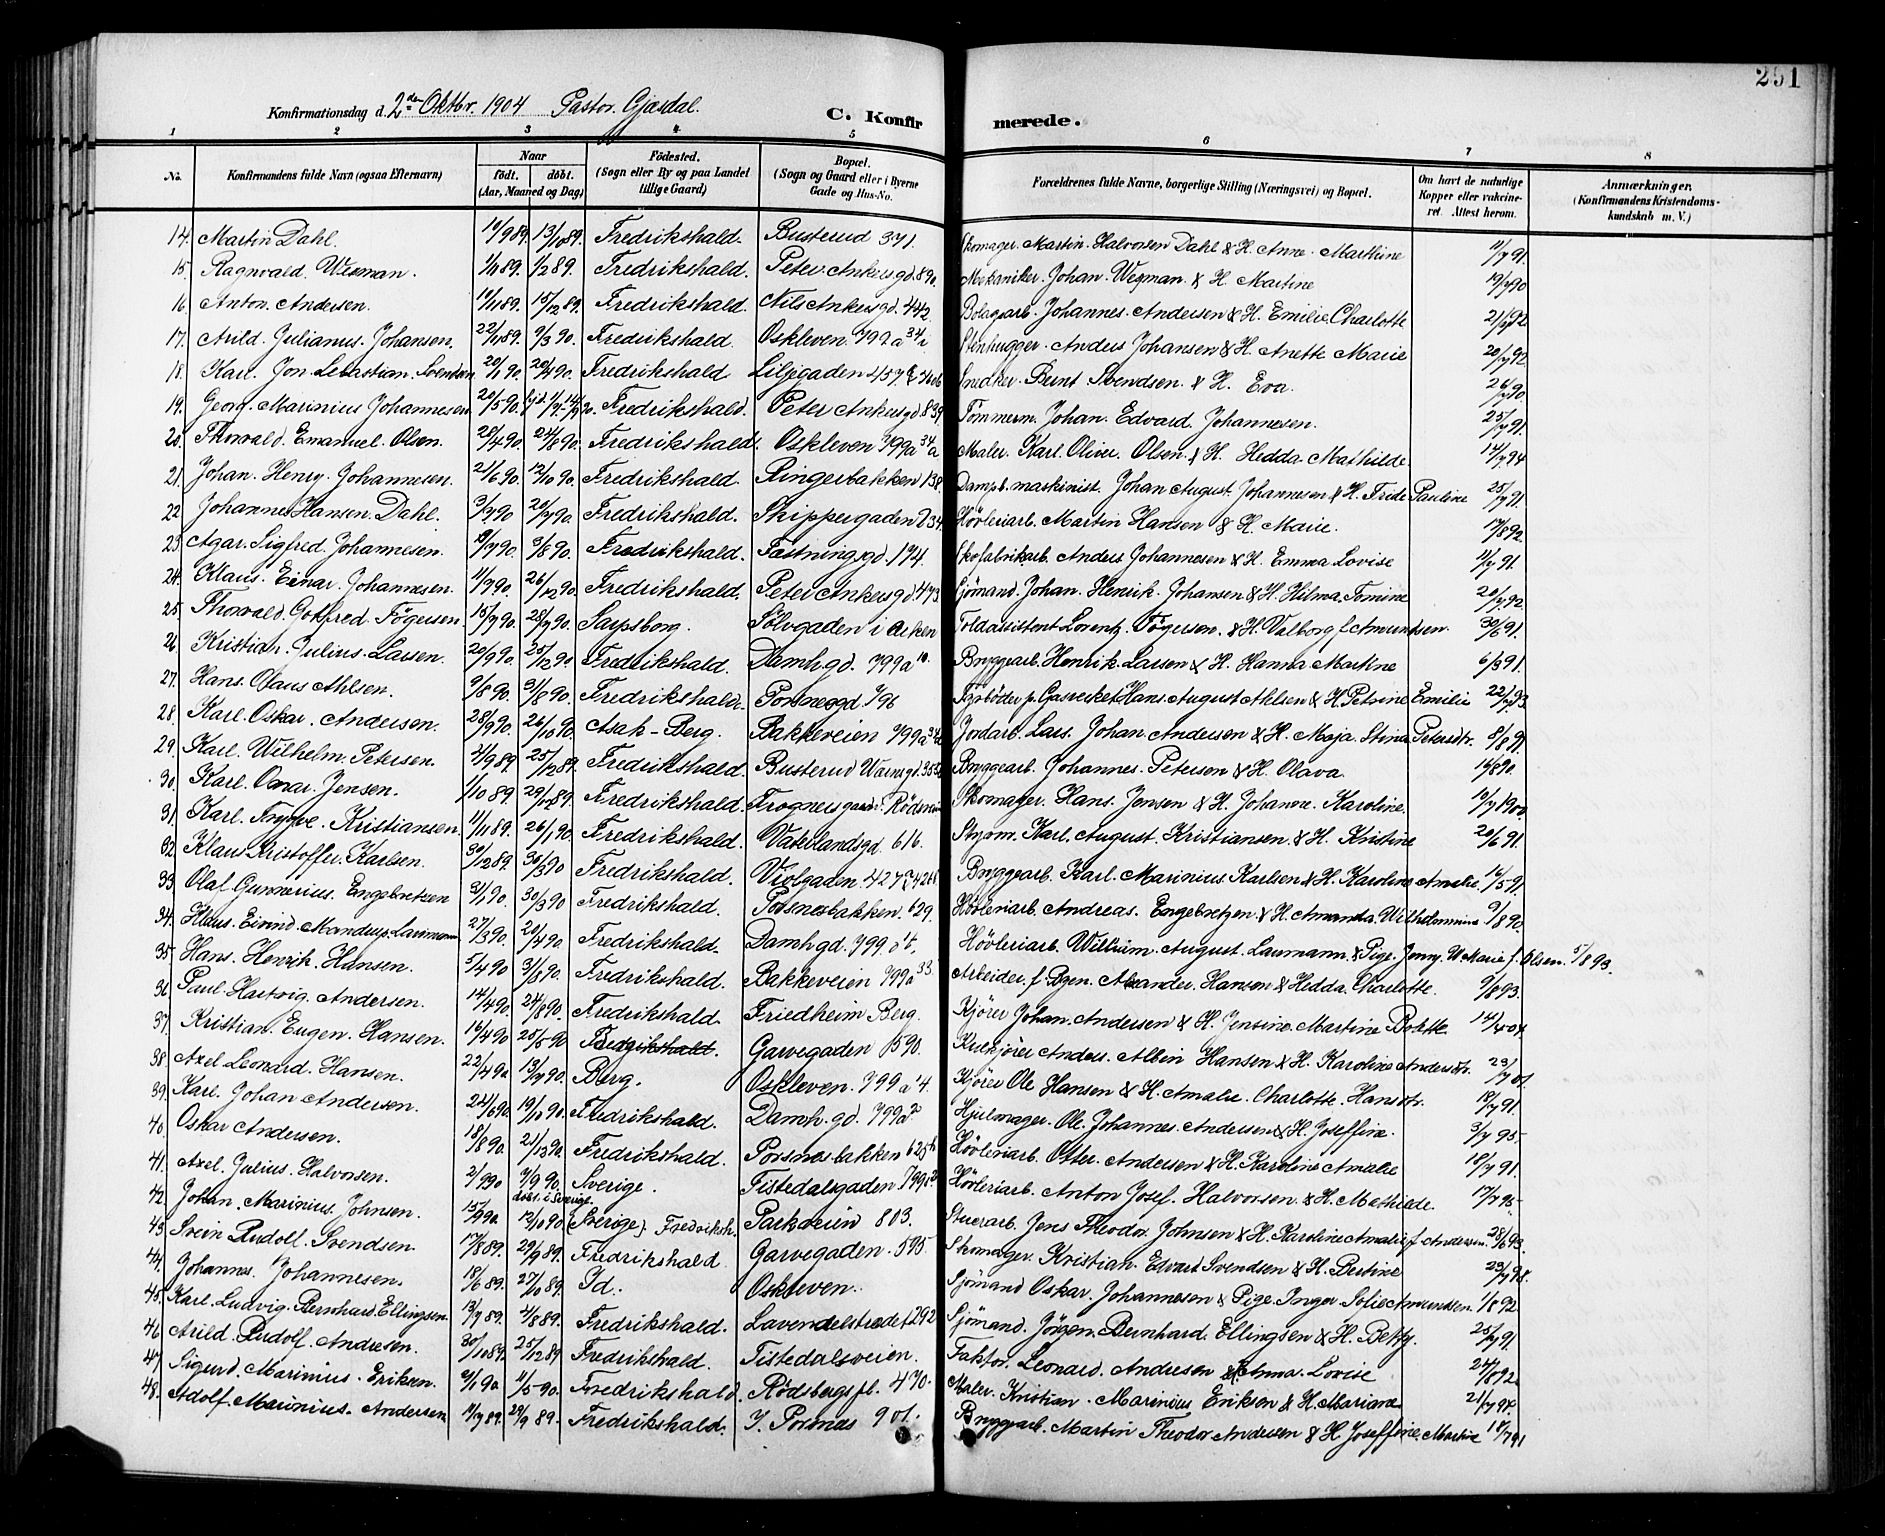 251
Konfirmationsdag d. 2den Oktbr. 1904 Pastor Gjæsdal.
C. Konfirmerede.
1 2 3 4 5 6 7 8
No. Konfirmandens fulde Navn (ogsaa Efternavn) Naar födt. döbt. (Aar, Maaned og Dag) Födested. (Sogn eller By og paa Landet tillige Gaard) Bopæl. (Sogn og Gaard eller i Byerne Gade og Hus-No. Forældrenes fulde Navne, borgerlige Stilling (Næringsvei) og Bopæl. Om havt de naturlige Kopper eller vakcineret. Attest herom. Anmærkninger. (Konfirmandens Kristendomskundskab m. V.)
14. Martin Dahl. 13/10 89. Fredrikshald. Busterud 371. Skomager Martin Halvorsen Dahl & H. Anne Marthine 11/7 91.
15. Ragnvald Wegman. 1/2 89. Fredrikshald. Peter Ankersgd. 890. Mekaniker Johan Wegman & H. Martine 19/7 90
16. Anton Andersen. 15/12 89. Fredrikshald. Nils Ankersgd. 442. Johannes Andersen & H. Emilie Charlotte
17. Arild Julianus Johansen. 22/11 89. 9/3 90. Fredrikshald. Oskleven 799a Stenhugger Anders Johansen & H. Anette Marie 20/7 92.
18. Karl Jon Sebastian Svendsen 20/1 90. 20/4 90. Fredrikshald Liljegaden 457 Snedker Bernt Svendsen & H. Eva. 26/7 90.
19. Georg Marinius Johannesen 20/5 90. Fredrikshald. Peter Ankersgd. 839 Tömmerm. Johan Edvard Johannesen. 25/7 91.
20. Thorvald Emanuel Olsen. 28/4 90. 24/8 90. Fredrikshald. Oskleven 799a Maler Karl Oliver Olsen & H. Hedda Mathilde 14/7 94
21. Johan Henry Johannesen. 21/6 90. 12/10 90. Fredrikshald. Ringerbakken 138. Dampb. maskinist Johan August Johannesen & H. Frida Pauline 25/7 91.
22. Johannes Hansen Dahl. 20/7 90. Fredrikshald. Skippergaden 234. Hövleriarb. Martin Hansen & H. Marie. 17/8 92.
23. Agar Sigfred Johannesen. 3/8 90. Fredrikshald. Fæstningsgd. 174. Skofabrikarb. Anders Johannesen & H. Emma Lovise 11/7 91.
24. Klaus Einar Johannesen. 11/7 90. 26/12 90. Fredrikshald. Peter Ankersgd. 473. Sjömand Johan Henrik Johansen & H. Hilma Tomine 20/7 92.
25. Thorvald Gotfred Fögersen 15/7 90. 28/7 90. Sarpsborg. Sölvgaden i Toldassistent Lorentz Fögersen & H. Valborg f. Amundsen. 30/6 91.
26. Kristian Julius Larsen. 20/9 90. 25/12 90 Fredrikshald. Damh. gd. 799a 10. Bryggearb. Henrik Larsen & H. Hanna Martine 6/8 91.
27. Hans Olaus Ahlsen. 9/8 90. 31/8 90. Fredrikshald. 796 Fyrböder p. Gasverket Hans August Ahlsen & H. Petrine Emilie 22/7 93.
28. Karl Oskar Andersen. 28/9 90. 26/10 90. Asak - Berg. Bakkeveien 799a Jordarb. Lars Johan Andersen & H. Maja Stina Petersdtr. 8/8 91
29. Karl Wilhelm Petersen. 21/9 89. 25/12 89. Fredrikshald. Busterud Bryggearb. Johannes Petersen & H. Olava. 14/8 90.
30. Karl Omar Jensen. 1/10 89. Fredrikshald. Frognersgaard Skomager Hans Jensen & H. Johanne Karoline. 10/7 1900
31. Karl Trygve Kristiansen. 11/11 89. 26/1 90. Fredrikshald. Vaterlandsgd. 616. Styrm. Karl August Kristiansen & H. Kristine 20/6 91.
32. Klaus Kristoffer Karlsen. 30/12 89. 30/3 90 Fredrikshald. Violgaden 427 Bryggearb. Karl Marinius Karlsen & H. Karoline Amalie 14/5 91.
33. Olaf Gunnerius Engebretsen 3/1 90. 30/3 90 Fredrikshald. Porsnesbakken 629. Hövleriarb. Andreas Engebretzen & H. Amanda Wilhelmmine 9/8 90.
34. Klaus Eivind Mandrup Laumann 27/3 90. 20/4 90 Fredrikshald. Damh. gd. 799 Hövleriarb. William August Laumann & Pige Jenny Marie f. Olsen. 5/8 93.
35. Hans Henrik Hansen. 5/4 90 31/8 90. Fredrikshald. Bakkeveien 799a 33. Arbeider f. Alexander Hansen & Hedda Charlotte. 9/8 93.
36. Paul Hartvig Andersen. 14/4 90. 24/8 90. Fredrikshald. Friedheim Berg. Kjörer Johan Andersen & H. Jensine Martine
37. Kristian Eugen Hansen. 16/4 90 25/5 90 Fredrikshald. Garvegaden 590. Kulkjörer Anders Albin Hansen & H. Karoline Andersdtr. 23/7 01.
38. Axel Leonard Hansen. 22/4 90 13/7 90. Berg. Oskleven 799a Kjörer Ole Hansen & H. Amalie Charlotte Hansdtr. 18/7 91.
39. Karl Johan Andersen. 24/6 90. 19/10 90. Fredrikshald. Damh. gd. 799a Hjulmager Ole Johannes Andersen & H. Joseffine. 3/7 95.
40. Oskar Andersen. 18/8 90. Fredrikshald. Porsnesbakken 625 b Hövleriarb. Otter Andersen & H. Karoline Amalie 18/7 91.
41. Axel Julius Halvorsen. 7/9 90. Sverige. Tistedalsgaden 799 Hövleriarb. Anton Josef Halvorsen & H. Mathilde. 17/7 95
42. Johan Marinius Johnsen. döbt i Sverige. 12/10 90 (Sverige) Fredriksh. Parkveien 803. Stuerarb. Jens Theodor Johnsen & H. Karoline Amalie f. Andersen. 28/6 93.
43. Svein Rudolf Svendsen. 17/8 89. 29/9 89. Fredrikshald. Garvegaden 595. Skomager Kristian Edvart Svendsen & H. Bertine 23/7 98.
44. Johannes Johannesen. 18/6 89. 27/10 89. Id. Oskleven. Sjömand Oskar Johannesen & Pige Inger Sofie Amundsen 1/8 92.
45. Karl Ludvig Bernhard Ellingsen. 13/7 89. 4/8 89. Fredrikshald. Lavendelstrædet 292 Sjömand Jörgen Bernhard Ellingsen & H. Betty. 25/7 91.
46. Arild Rudolf Andresen. 30/10 89. 25/12 89 Fredrikshald. Tistedalsveien. Faktor Leonard Andresen & Anna Lovise 24/8 92
47. Sigurd Marinius Eriksen. 11/5 90. Fredrikshald. Rödsbergsfl. 470. Maler Kristian Marinius Eriksen & H. Mariane
48. Adolf Marinius Andersen 11/7 89. 29/9 89. Fredrikshald. Y. Porsnæs 901. Bryggearb. Martin Theodor Andersen & H. Joseffine Martine 18/7 91